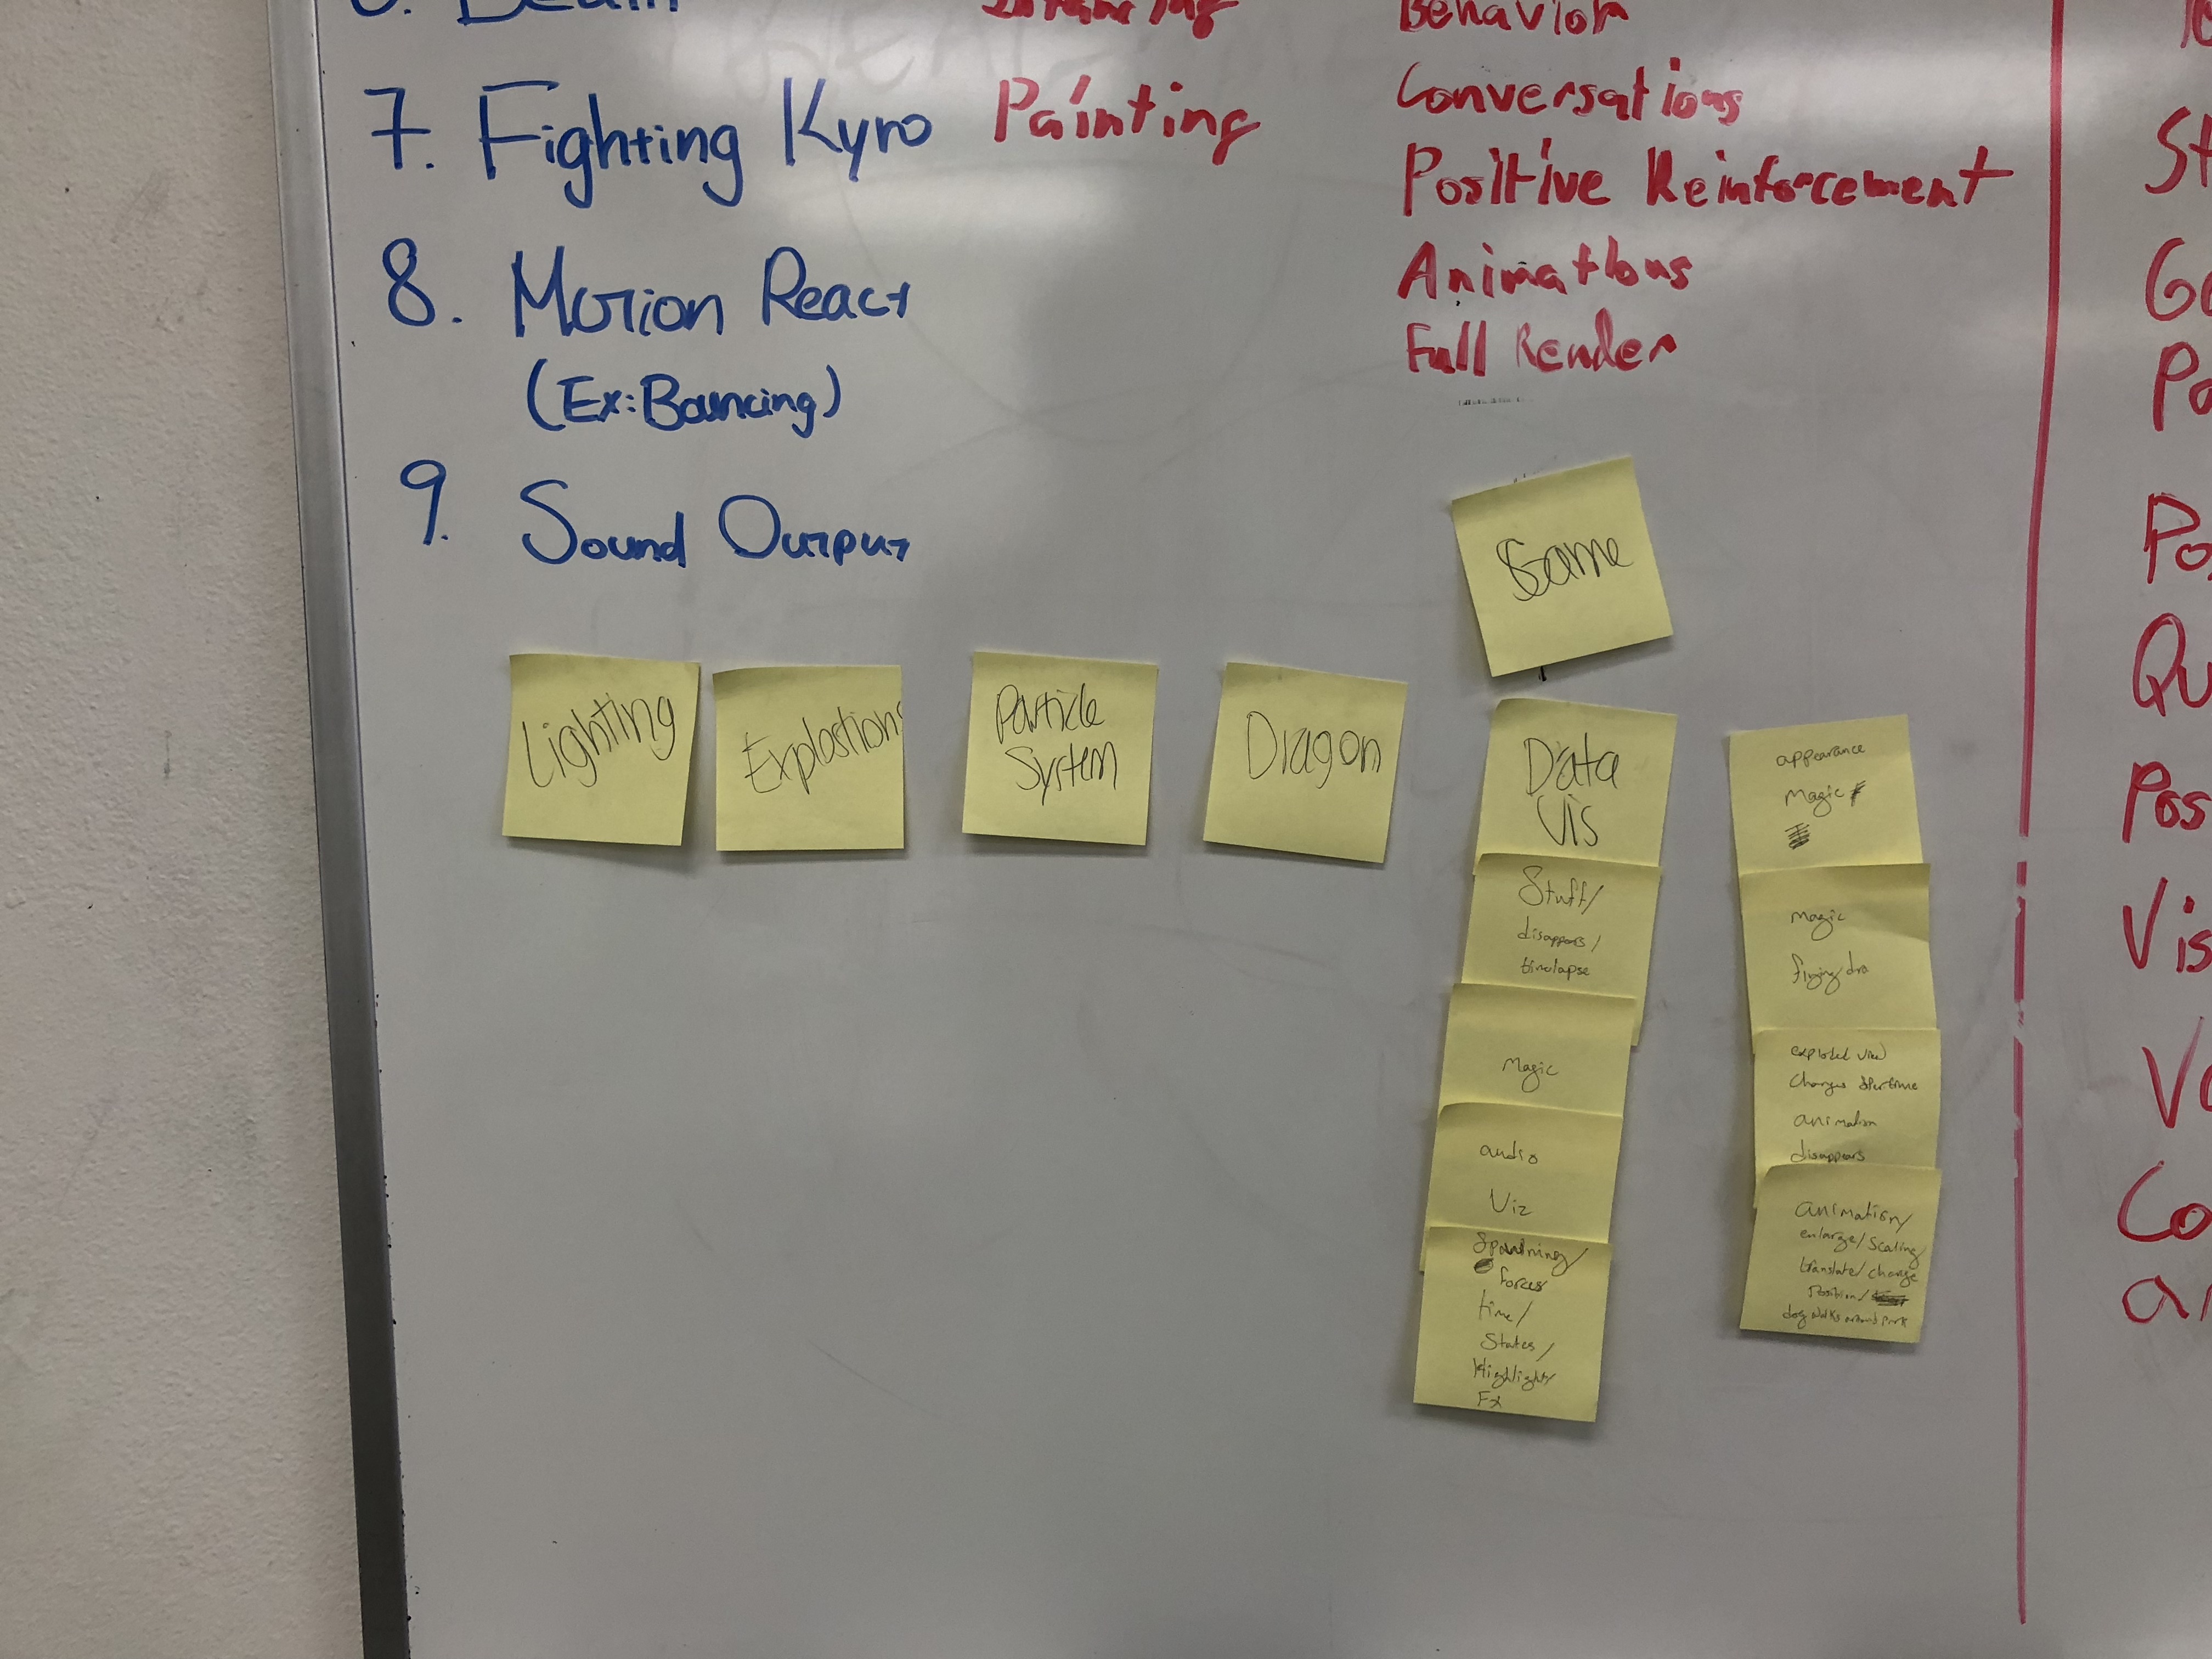 7. Fighting Kyro
8. Motion React
(Ex: Bouncing)
9. Sound Output
Painting
Behavior
Conversations
Positive Reinforcement
Animations
Full Render
Game
Lighting
Explostions
Particle
System
Dragon
Data
Vis
Stuff/
disappears/
timelapse
magic
audio
Viz
Spawning/
forces
time/
States/
Highlights
Fx
appearance
magic
magic
flying dra
exploded view
changes over time
animation
disappears
animation/
enlarge/scaling
translate/change
position/
dog walks around park